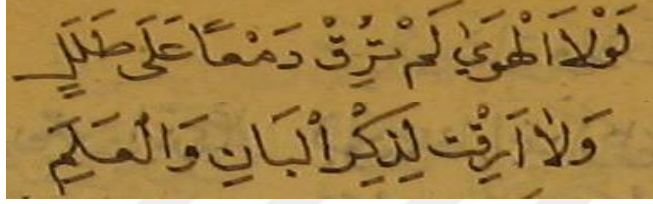 لَوْلَا الْهَوَىٰ لَمْ تُرِقْ دَمْعًا عَلَى طَلَلٍ
وَلَا اَرِقْتَ لِذِكْرِ الْبَانِ وَالْعَلَمِ